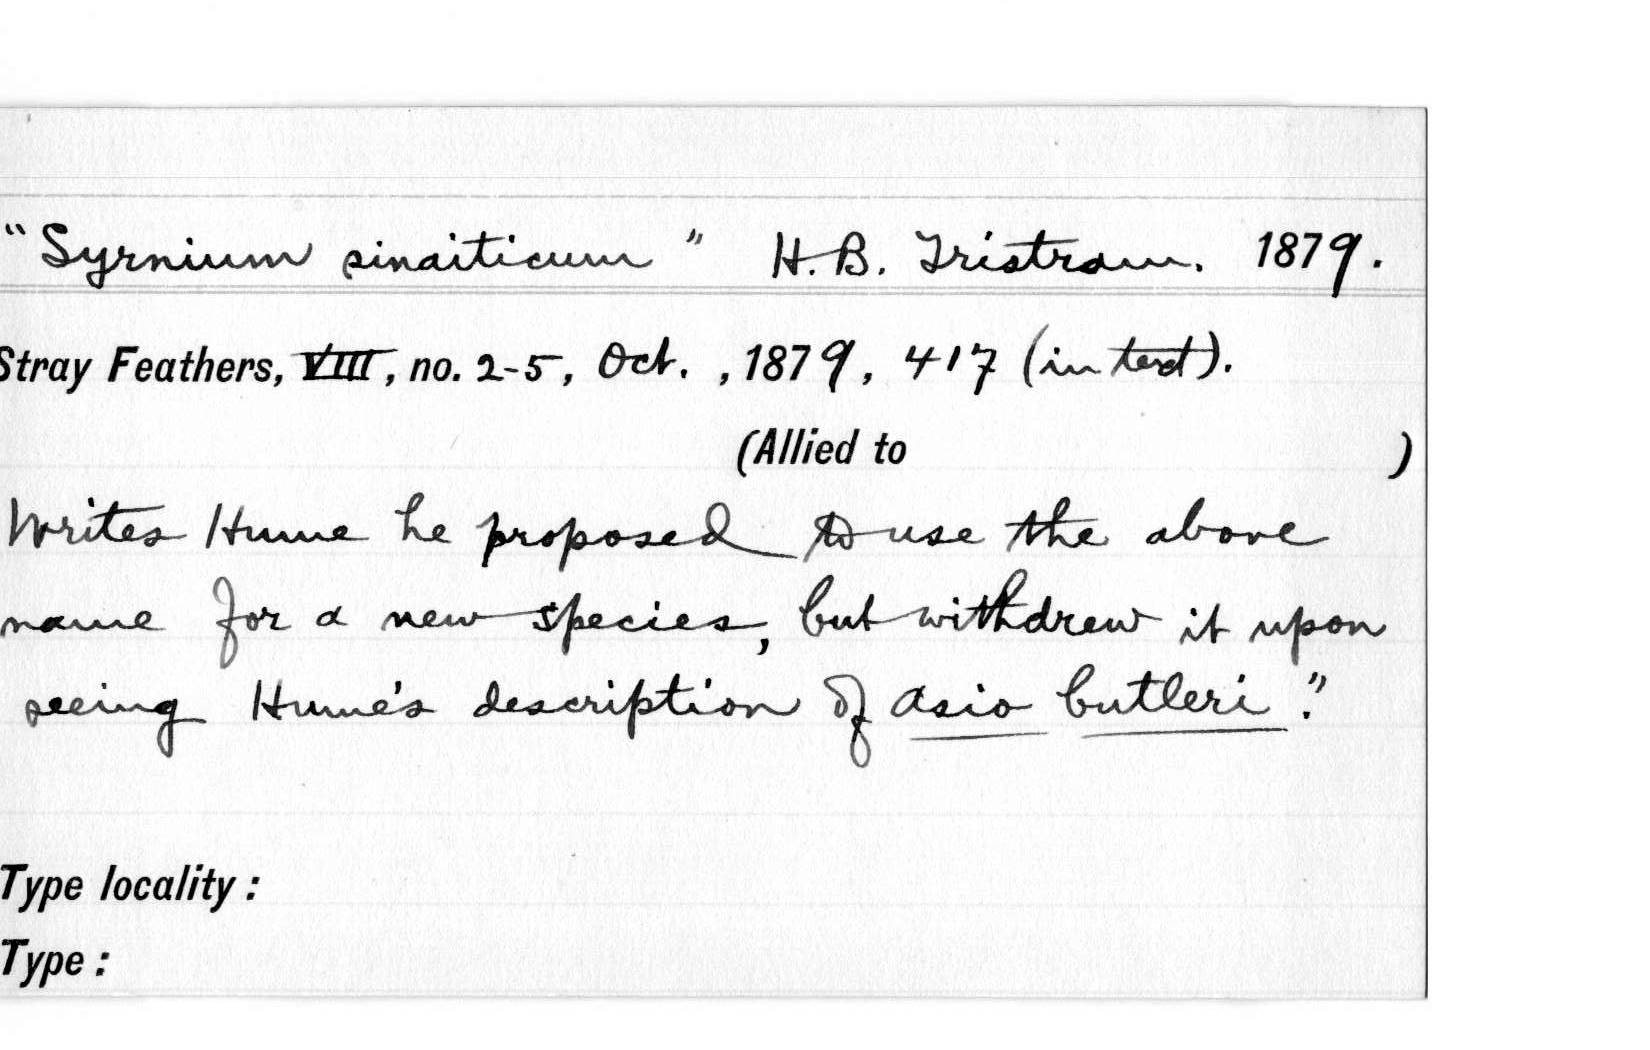 "Syrnium sinaiticum" H. B. Tristram. 1879.
Stray Feathers, VIII, no. 2-5, Oct. , 1879, 417 (in text).
(Allied to )
Writes Hume he proposed to use the above
name for a new species, but withdrew it upon
seeing Hume's description of Asio butleri."
Type locality :
Type :